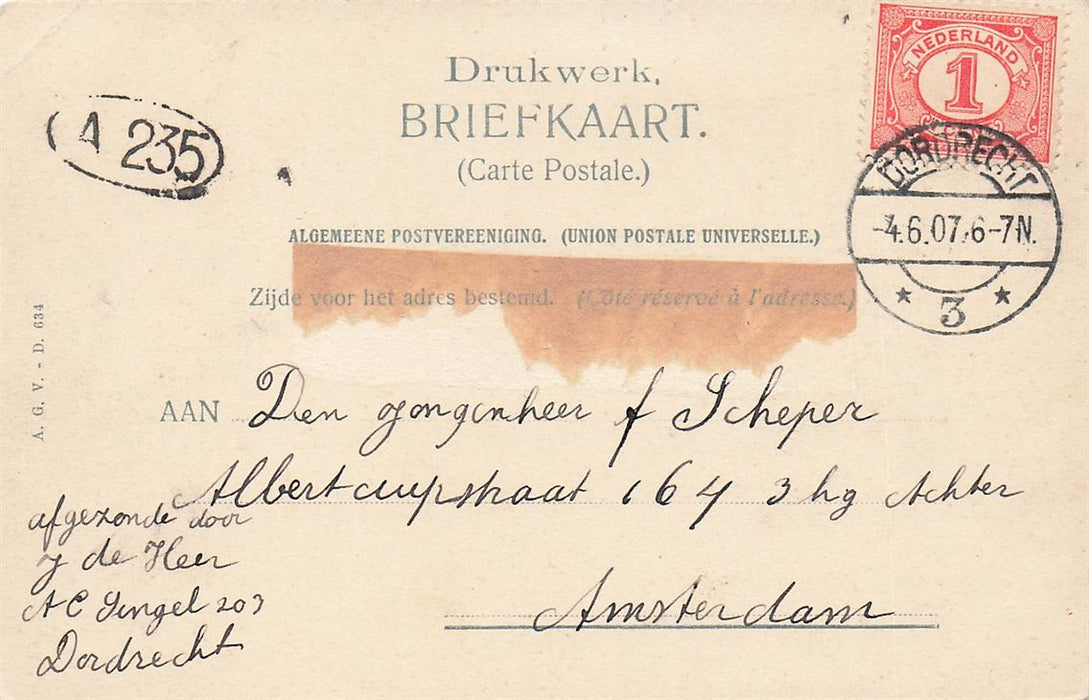 NEDERLAND
1
Drukwerk.
BRIEFKAART.
(Carte Postale.)
A 235
DORDRECHT
-4.6.07.6-7N.
3
ALGEMEENE POSTVEREENIGING. (UNION POSTALE UNIVERSELLE.)
Zijde voor het adres bestemd. (Côté réservé à l'adresse.)
A. G. V. - D. 634
AAN Den Jongenheer f Scheper
Albertcuipstraat 164 3 hg Achter
Amsterdam
afgezonde door
J de Heer
AC Singel 203
Dordrecht